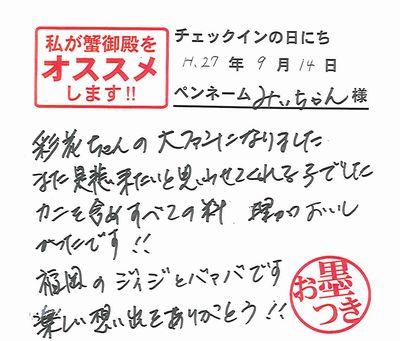 私が蟹御殿を
オススメ
します!!
チェックインの日にち
H.27 年 9 月 14 日
ペンネーム みぃちゃん 様
彩花ちゃんの大ファンになりました
また是非来たいと思わせてくれる子でした
カニを含めすべての料理がおいし
かったです!!
福岡のジィジとバァバです
楽しい想い出をありがとう!!
お墨
つき